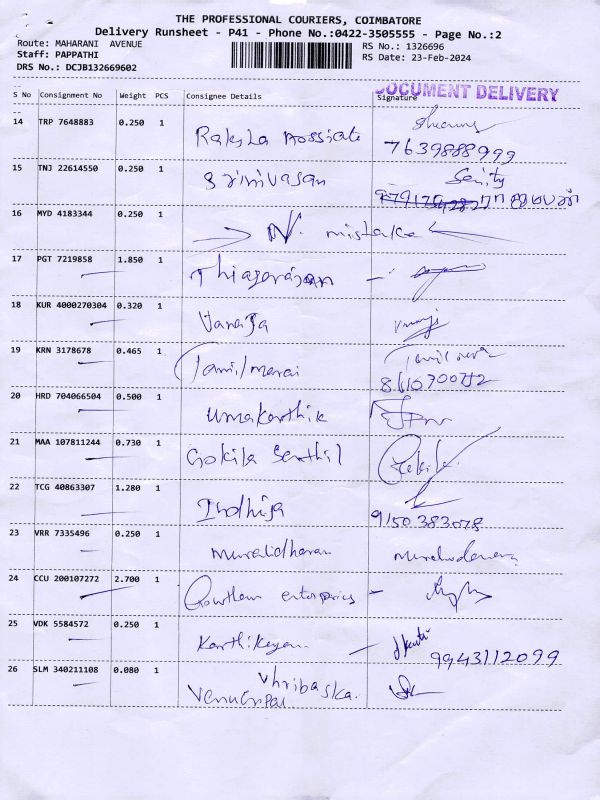 THE PROFESSIONAL COURIERS, COIMBATORE
Delivery Runsheet - P41 - Phone No.:0422-3505555 - Page No.:2
Route: MAHARANI AVENUE
RS No.: 1326696
Staff: PAPPATHI
RS Date: 23-Feb-2024
DRS No.: DCJB132669602
DOCUMENT DELIVERY
S No Consignment No Weight PCS Consignee Details Signature
14 TRP 7648883 0.250 1
Raksha Assosiate 7639888999
15 TNJ 22614550 0.250 1
Srinivasan
16 MYD 4183344 0.250 1
N. mistake
17 PGT 7219858 1.850 1
Thiagarajan
18 KUR 4000270304 0.320 1
Vanaja
19 KRN 3178678 0.465 1
Tamilmarai
20 HRD 704066504 0.500 1
Umakarthik
21 MAA 107811244 0.730 1
Gokila Senthil Gokila
22 TCG 40863307 1.280 1
9150383078
23 VRR 7335496 0.250 1
Muralidharan
24 CCU 200107272 2.700 1
Gowtham enterprices
25 VDK 5584572 0.250 1
Karthikeyan 9943112099
26 SLM 340211108 0.080 1
Venugopal